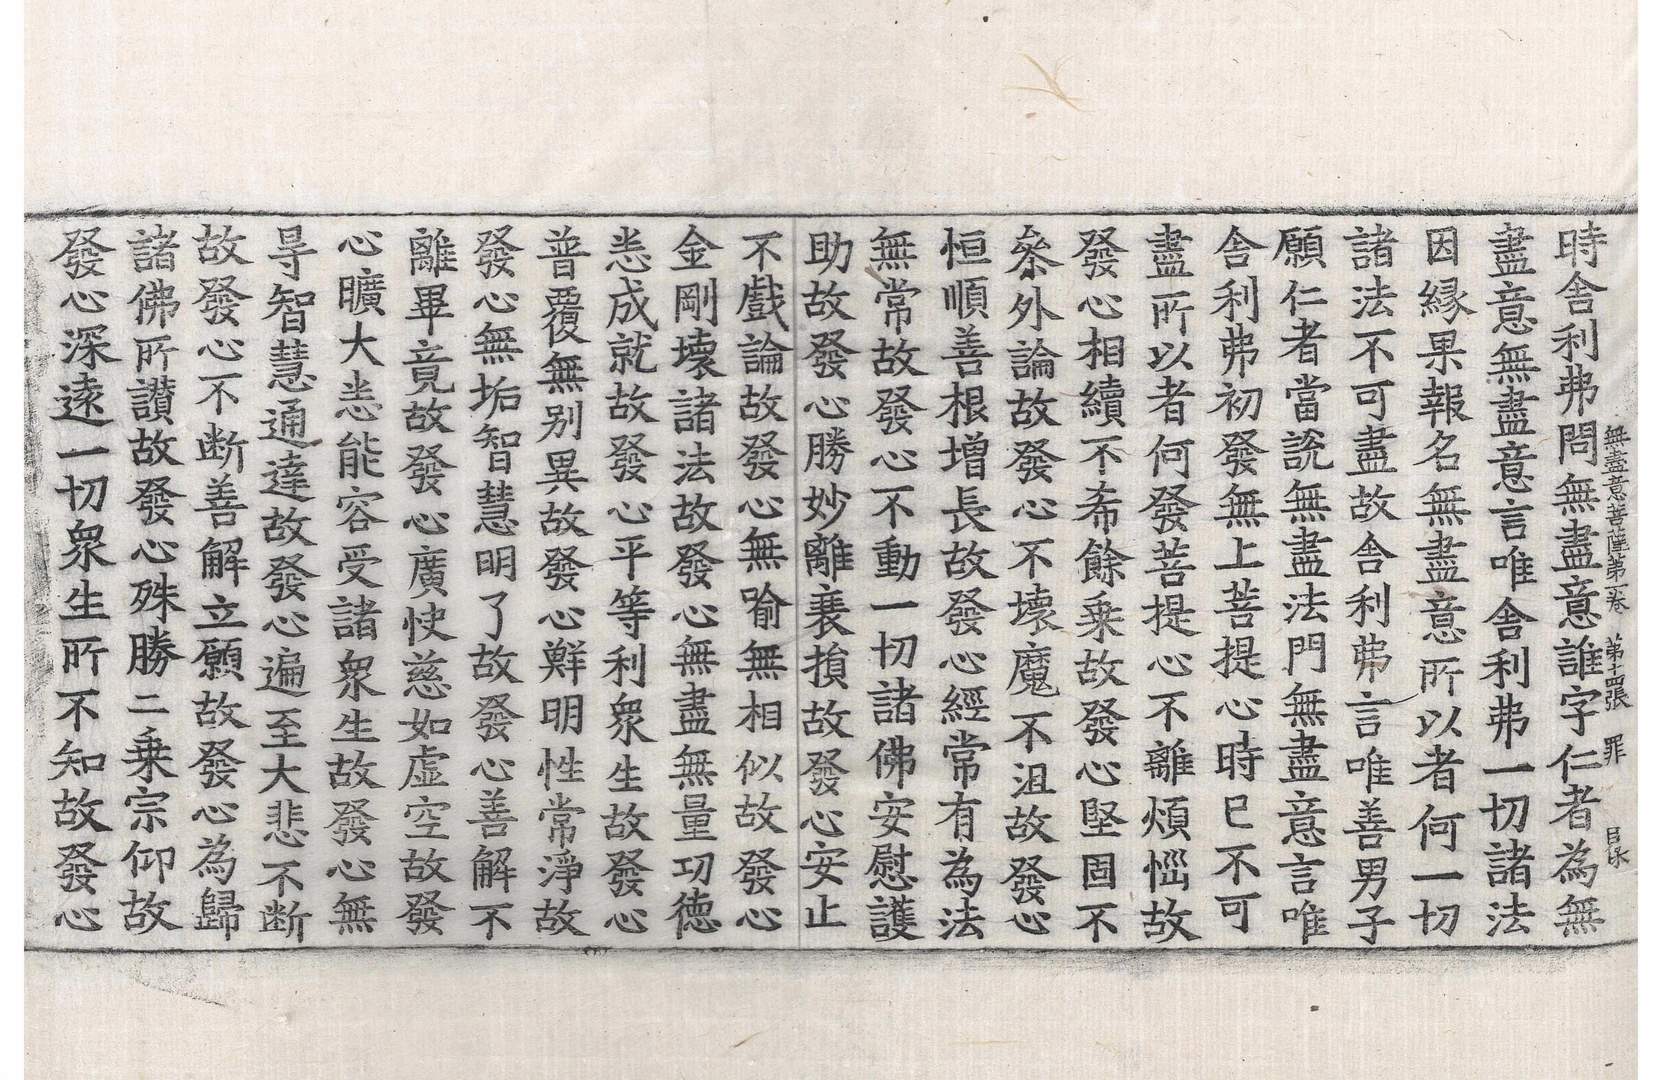 無盡意菩薩第一卷 第十四張 罪
時舎利弗問無盡意誰字仁者為無
盡意無盡意言唯舎利弗一切諸法
因縁果報名無盡意所以者何一切
諸法不可盡故舎利弗言唯善男子
願仁者當説無盡法門無盡意言唯
舎利弗初發無上菩提心時已不可
盡所以者何發菩提心不離煩惱故
發心相續不希餘乗故發心堅固不
叅外論故發心不壊魔不沮故發心
恒順善根增長故發心經常有為法
無常故發心不動一切諸佛安慰護
助故發心勝妙離衰損故發心安止
不戲論故發心無喻無相似故發心
金剛壊諸法故發心無盡無量功徳
悉成就故發心平等利衆生故發心
普覆無别異故發心鮮明性常淨故
發心無垢智慧明了故發心善解不
離畢竟故發心廣快慈如虚空故發
心曠大悉能容受諸衆生故發心無
㝵智慧通達故發心遍至大悲不断
故發心不断善解立願故發心為歸
諸佛所讃故發心殊勝二乗宗仰故
發心深遠一切衆生所不知故發心